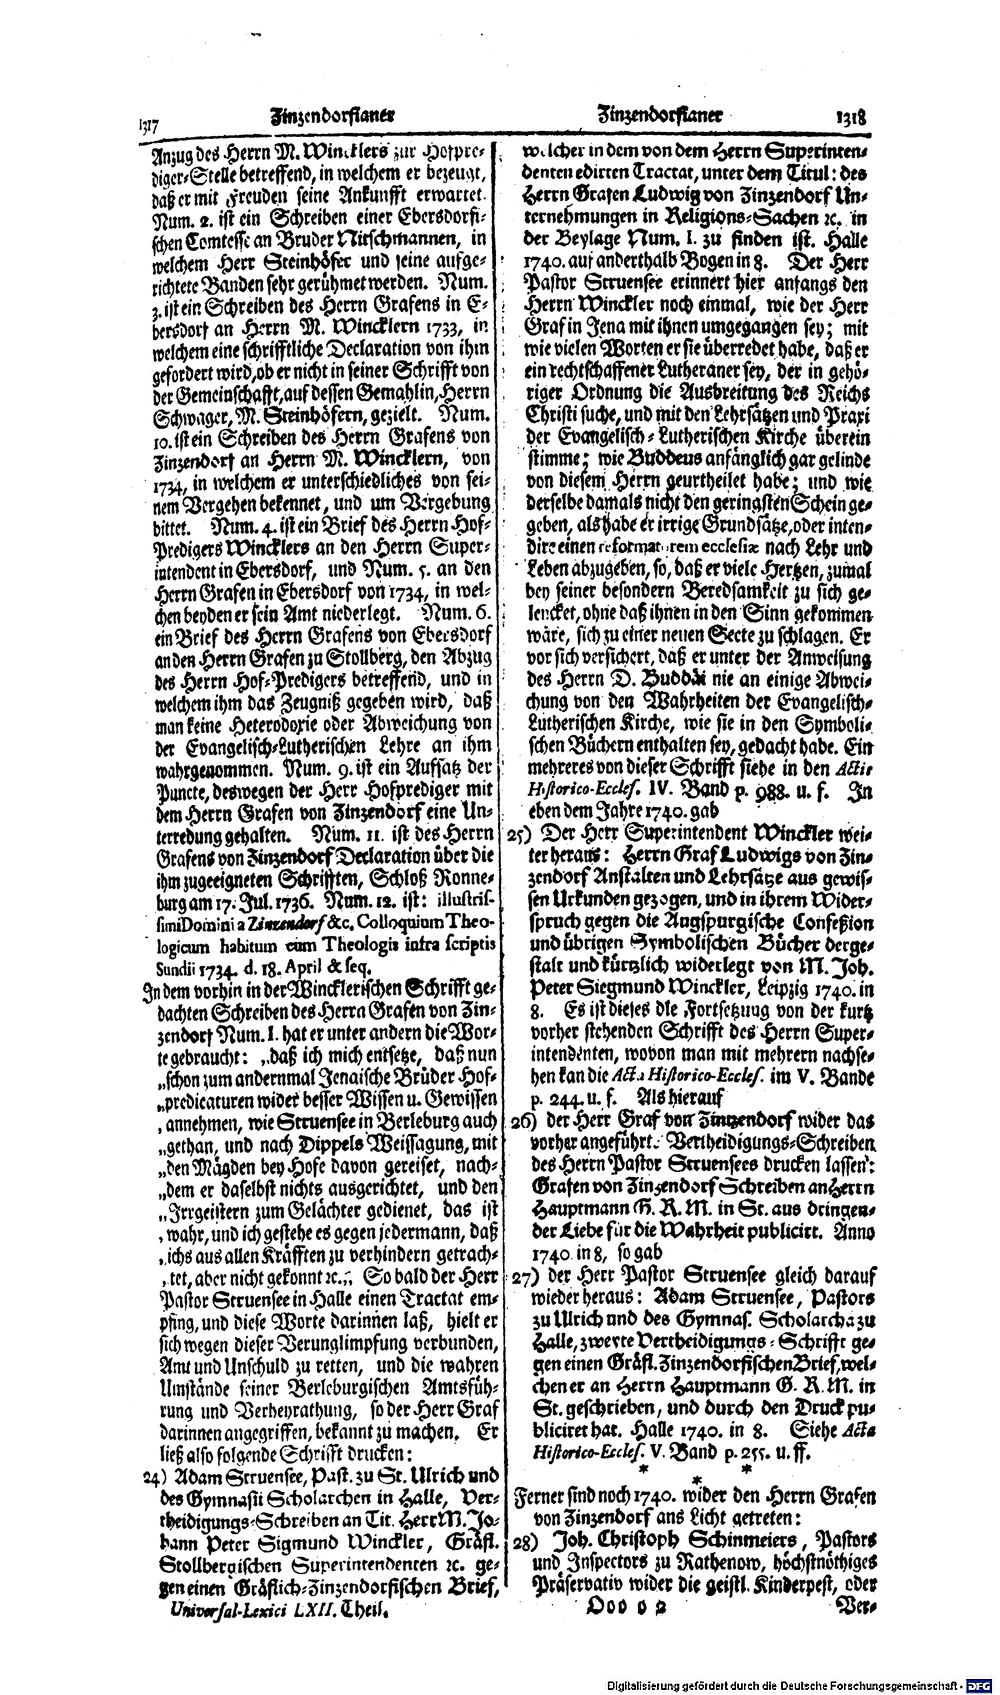 1317 Zinzendorfianer
Zinzendorfianer 1318
Anzug des Herrn M. Wincklers zur Hofpre-
diger-Stelle betreffend, in welchem er bezeugt,
daß er mit Freuden seine Ankunfft erwartet.
Num. 2. ist ein Schreiben einer Ebersdorfi-
schen Comtesse an Bruder Nitschmannen, in
welchem Herr Steinhöfer und seine aufge-
richtete Banden sehr gerühmet werden. Num.
3. ist ein Schreiben des Herrn Grafens in E-
bersdorf an Herrn M. Wincklern 1733, in
welchem eine schrifftliche Declaration von ihm
gefordert wird, ob er nicht in seiner Schrifft von
der Gemeinschafft, auf dessen Gemahlin, Herrn
Schwager, M. Steinhöfern, gezielt. Num.
10. ist ein Schreiben des Herrn Grafens von
Zinzendorf an Herrn M. Wincklern, von
1734, in welchem er unterschiedliches von sei-
nem Vergehen bekennet, und um Vergebung
bittet. Num. 4. ist ein Brief des Herrn Hof-
Predigers Wincklers an den Herrn Super-
intendent in Ebersdorf, und Num. 5. an den
Herrn Grafen in Ebersdorf von 1734, in wel-
chen beyden er sein Amt niederlegt. Num. 6.
ein Brief des Herrn Grafens von Ebersdorf
an den Herrn Grafen zu Stollberg, den Abzug
des Herrn Hof-Predigers betreffend, und in
welchem ihm das Zeugniß gegeben wird, daß
man keine Heterodoxie oder Abweichung von
der Evangelisch-Lutherischen Lehre an ihm
wahrgenommen. Num. 9. ist ein Aufsatz der
Puncte, deswegen der Herr Hofprediger mit
dem Herrn Grafen von Zinzendorf eine Un-
terredung gehalten. Num. 11. ist des Herrn
Grafens von Zinzendorf Declaration über die
ihm zugeeigneten Schrifften, Schloß Ronne-
burg am 17. Jul. 1736. Num. 12. ist: illustris-
simi Domini a Zinzendorf &c. Colloquium Theo-
logicum habitum cum Theologis intra scriptis
Sundii 1734. d. 18. April & seq.
In dem vorhin in der Wincklerischen Schrifft ge-
dachten Schreiben des Herrn Grafen von Zin-
zendorf Num. I. hat er unter andern die Wor-
te gebraucht: „daß ich mich entsetze, daß nun
„schon zum andernmal Jenaische Brüder Hof-
„predicaturen wider besser Wissen u. Gewissen
„annehmen, wie Struensee in Berleburg auch
„gethan, und nach Dippels Weissagung, mit
„den Mägden bey Hofe davon gereiset, nach-
„dem er daselbst nichts ausgerichtet, und den
„Irrgeistern zum Gelächter gedienet, das ist
„wahr, und ich gestehe es gegen jedermann, daß
„ichs aus allen Kräfften zu verhindern getrach-
„tet, aber nicht gekonnt ꝛc.„ So bald der Herr
Pastor Struensee in Halle einen Tractat em-
pfing, und diese Worte darinnen laß, hielt er
sich wegen dieser Verunglimpfung verbunden,
Amt und Unschuld zu retten, und die wahren
Umstände seiner Berleburgischen Amtsfüh-
rung und Verheyrathung, so der Herr Graf
darinnen angegriffen, bekannt zu machen. Er
ließ also folgende Schrifft drucken:
24) Adam Struensee, Past. zu St. Ulrich und
des Gymnasii Scholarchen in Halle, Ver-
theidigungs-Schreiben an Tit. Herr M. Jo-
hann Peter Sigmund Winckler, Gräfl.
Stollbergischen Superintendenten ꝛc. ge-
gen einen Gräflich-Zinzendorfischen Brief,
Universal-Lexici LXII. Theil.
welcher in dem von dem Herrn Superinten-
denten edirten Tractat, unter dem Titul: des
Herrn Grafen Ludwig von Zinzendorf Un-
ternehmungen in Religions-Sachen ꝛc. in
der Beylage Num. I. zu finden ist. Halle
1740. auf anderthalb Bogen in 8. Der Herr
Pastor Struensee erinnert hier anfangs den
Herrn Winckler noch einmal, wie der Herr
Graf in Jena mit ihnen umgegangen sey; mit
wie vielen Worten er sie überredet habe, daß er
ein rechtschaffener Lutheraner sey, der in gehö-
riger Ordnung die Ausbreitung des Reichs
Christi suche, und mit den Lehrsätzen und Praxi
der Evangelisch-Lutherischen Kirche überein
stimme; wie Buddeus anfänglich gar gelinde
von diesem Herrn geurtheilet habe; und wie
derselbe damals nicht den geringsten Schein ge-
geben, als habe er irrige Grundsätze, oder inten-
dire einen reformatorem ecclesiæ nach Lehr und
Leben abzugeben, so, daß er viele Hertzen, zumal
bey seiner besondern Beredsamkeit zu sich ge-
lencket, ohne daß ihnen in den Sinn gekommen
wäre, sich zu einer neuen Secte zu schlagen. Er
vor sich versichert, daß er unter der Anweisung
des Herrn D. Buddäi nie an einige Abwei-
chung von den Wahrheiten der Evangelisch-
Lutherischen Kirche, wie sie in den Symboli-
schen Büchern enthalten sey, gedacht habe. Ein
mehreres von dieser Schrifft siehe in den Actis
Historico-Eccles. IV. Band p. 988. u. f. In
eben dem Jahre 1740. gab
25) Der Herr Superintendent Winckler wei-
ter heraus: Herrn Graf Ludwigs von Zin-
zendorf Anstalten und Lehrsätze aus gewis-
sen Urkunden gezogen, und in ihrem Wider-
spruch gegen die Augspurgische Confeßion
und übrigen Symbolischen Bücher derge-
stalt und kürtzlich widerlegt von M. Joh.
Peter Siegmund Winckler, Leipzig 1740. in
8. Es ist dieses die Fortsetzung von der kurtz
vorher stehenden Schrifft des Herrn Super-
intendenten, wovon man mit mehrern nachse-
hen kan die Acta Historico-Eccles. im V. Bande
p. 244. u. f. Als hierauf
26) der Herr Graf von Zintzendorf wider das
vorher angeführte Vertheidigungs-Schreiben
des Herrn Pastor Struensees drucken lassen:
Grafen von Zinzendorf Schreiben an Herrn
Hauptmann G. R. M. in St. aus dringen-
der Liebe für die Wahrheit publicirt. Anno
1740. in 8, so gab
27) der Herr Pastor Struensee gleich darauf
wieder heraus: Adam Struensee, Pastors
zu Ulrich und des Gymnas. Scholarcha zu
Halle, zweyte Vertheidigungs-Schrifft ge-
gen einen Gräfl. Zinzendorfischen Brief, wel-
chen er an Herrn Hauptmann G. R. M. in
St. geschrieben, und durch den Druck pu-
bliciret hat. Halle 1740. in 8. Siehe Acta
Historico-Eccles. V. Band p. 255. u. ff.
* * *
Ferner sind noch 1740. wider den Herrn Grafen
von Zinzendorf ans Licht getreten:
28) Joh. Christoph Schinmeiers, Pastors
und Inspectors zu Rathenow, höchstnöthiges
Präservativ wider die geistl. Kinderpest, oder
Oooo 2 Ver-
Digitalisierung gefördert durch die Deutsche Forschungsgemeinschaft - DFG